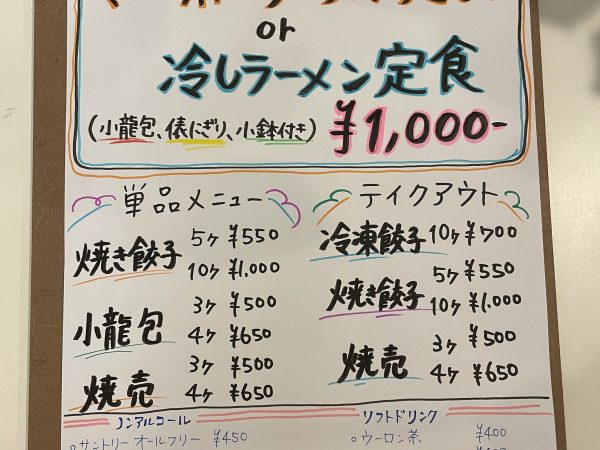 or
冷しラーメン定食
(小龍包、俵にぎり、小鉢付き) ¥1,000-
単品メニュー
焼き餃子 5ヶ ¥550
10ヶ ¥1,000
小龍包 3ヶ ¥500
4ヶ ¥650
焼売 3ヶ ¥500
4ヶ ¥650
テイクアウト
冷凍餃子 10ヶ ¥700
焼き餃子 5ヶ ¥550
10ヶ ¥1,000
焼売 3ヶ ¥500
4ヶ ¥650
ノンアルコール
。サントリーオールフリー ¥450
ソフトドリンク
。ウーロン茶 ¥400